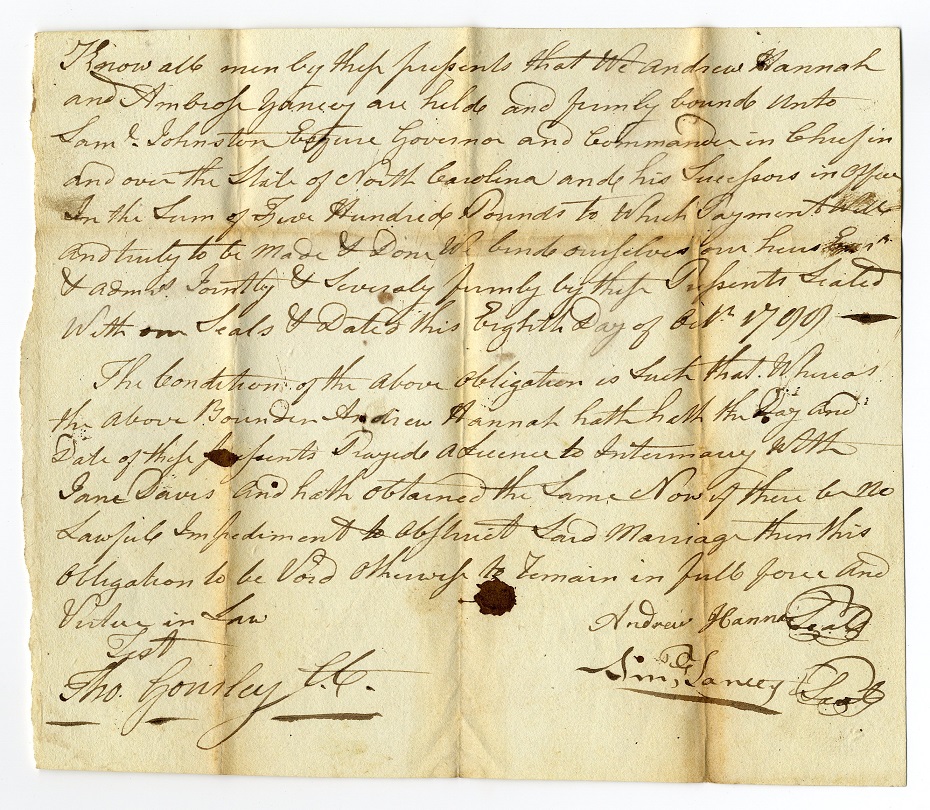 Know all men by these presents that We Andrew Hannah
and Ambrose Yancey are held and firmly bound unto
Sam.l Johnston Esquire Governor and Commander in Chief in
and over the State of North Carolina and his Successors in Office
In the Sum of Five Hundred Pounds to Which Payment Well
and truly to be Made & Done We bind ourselves our heirs Exrs
& admrs Jointly & Severaly firmly by these Presents Sealed
With our Seals & Dated this Eighth Day of Octr
The Condition of the above obligation is Such that Whereas
the above Bounden Andrew Hannah hath hath the Day and
Date of these presents Prayed a Licence to Intermarry With
Jane Davis and hath obtained the Same Now if there be no
Lawfull Impediment to obstruct Said Marriage then this
obligation to be Void otherwise to Remain in full force and
Virtue in Law
Andrew Hanna Seal
Test
Yancey Seal
Tho. Gourley C.C.